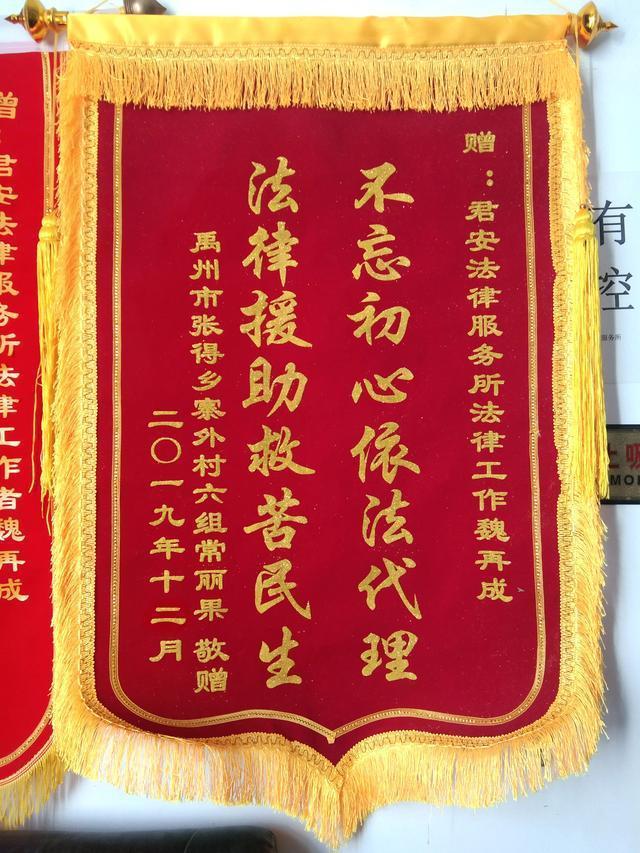 赠：君安法律服务所法律工作魏再成
不忘初心依法代理
法律援助救苦民生
禹州市张得乡寨外村六组常丽果 敬赠
二〇一九年十二月
赠：君安法律服务所法律工作者魏再成
有
控
服务所